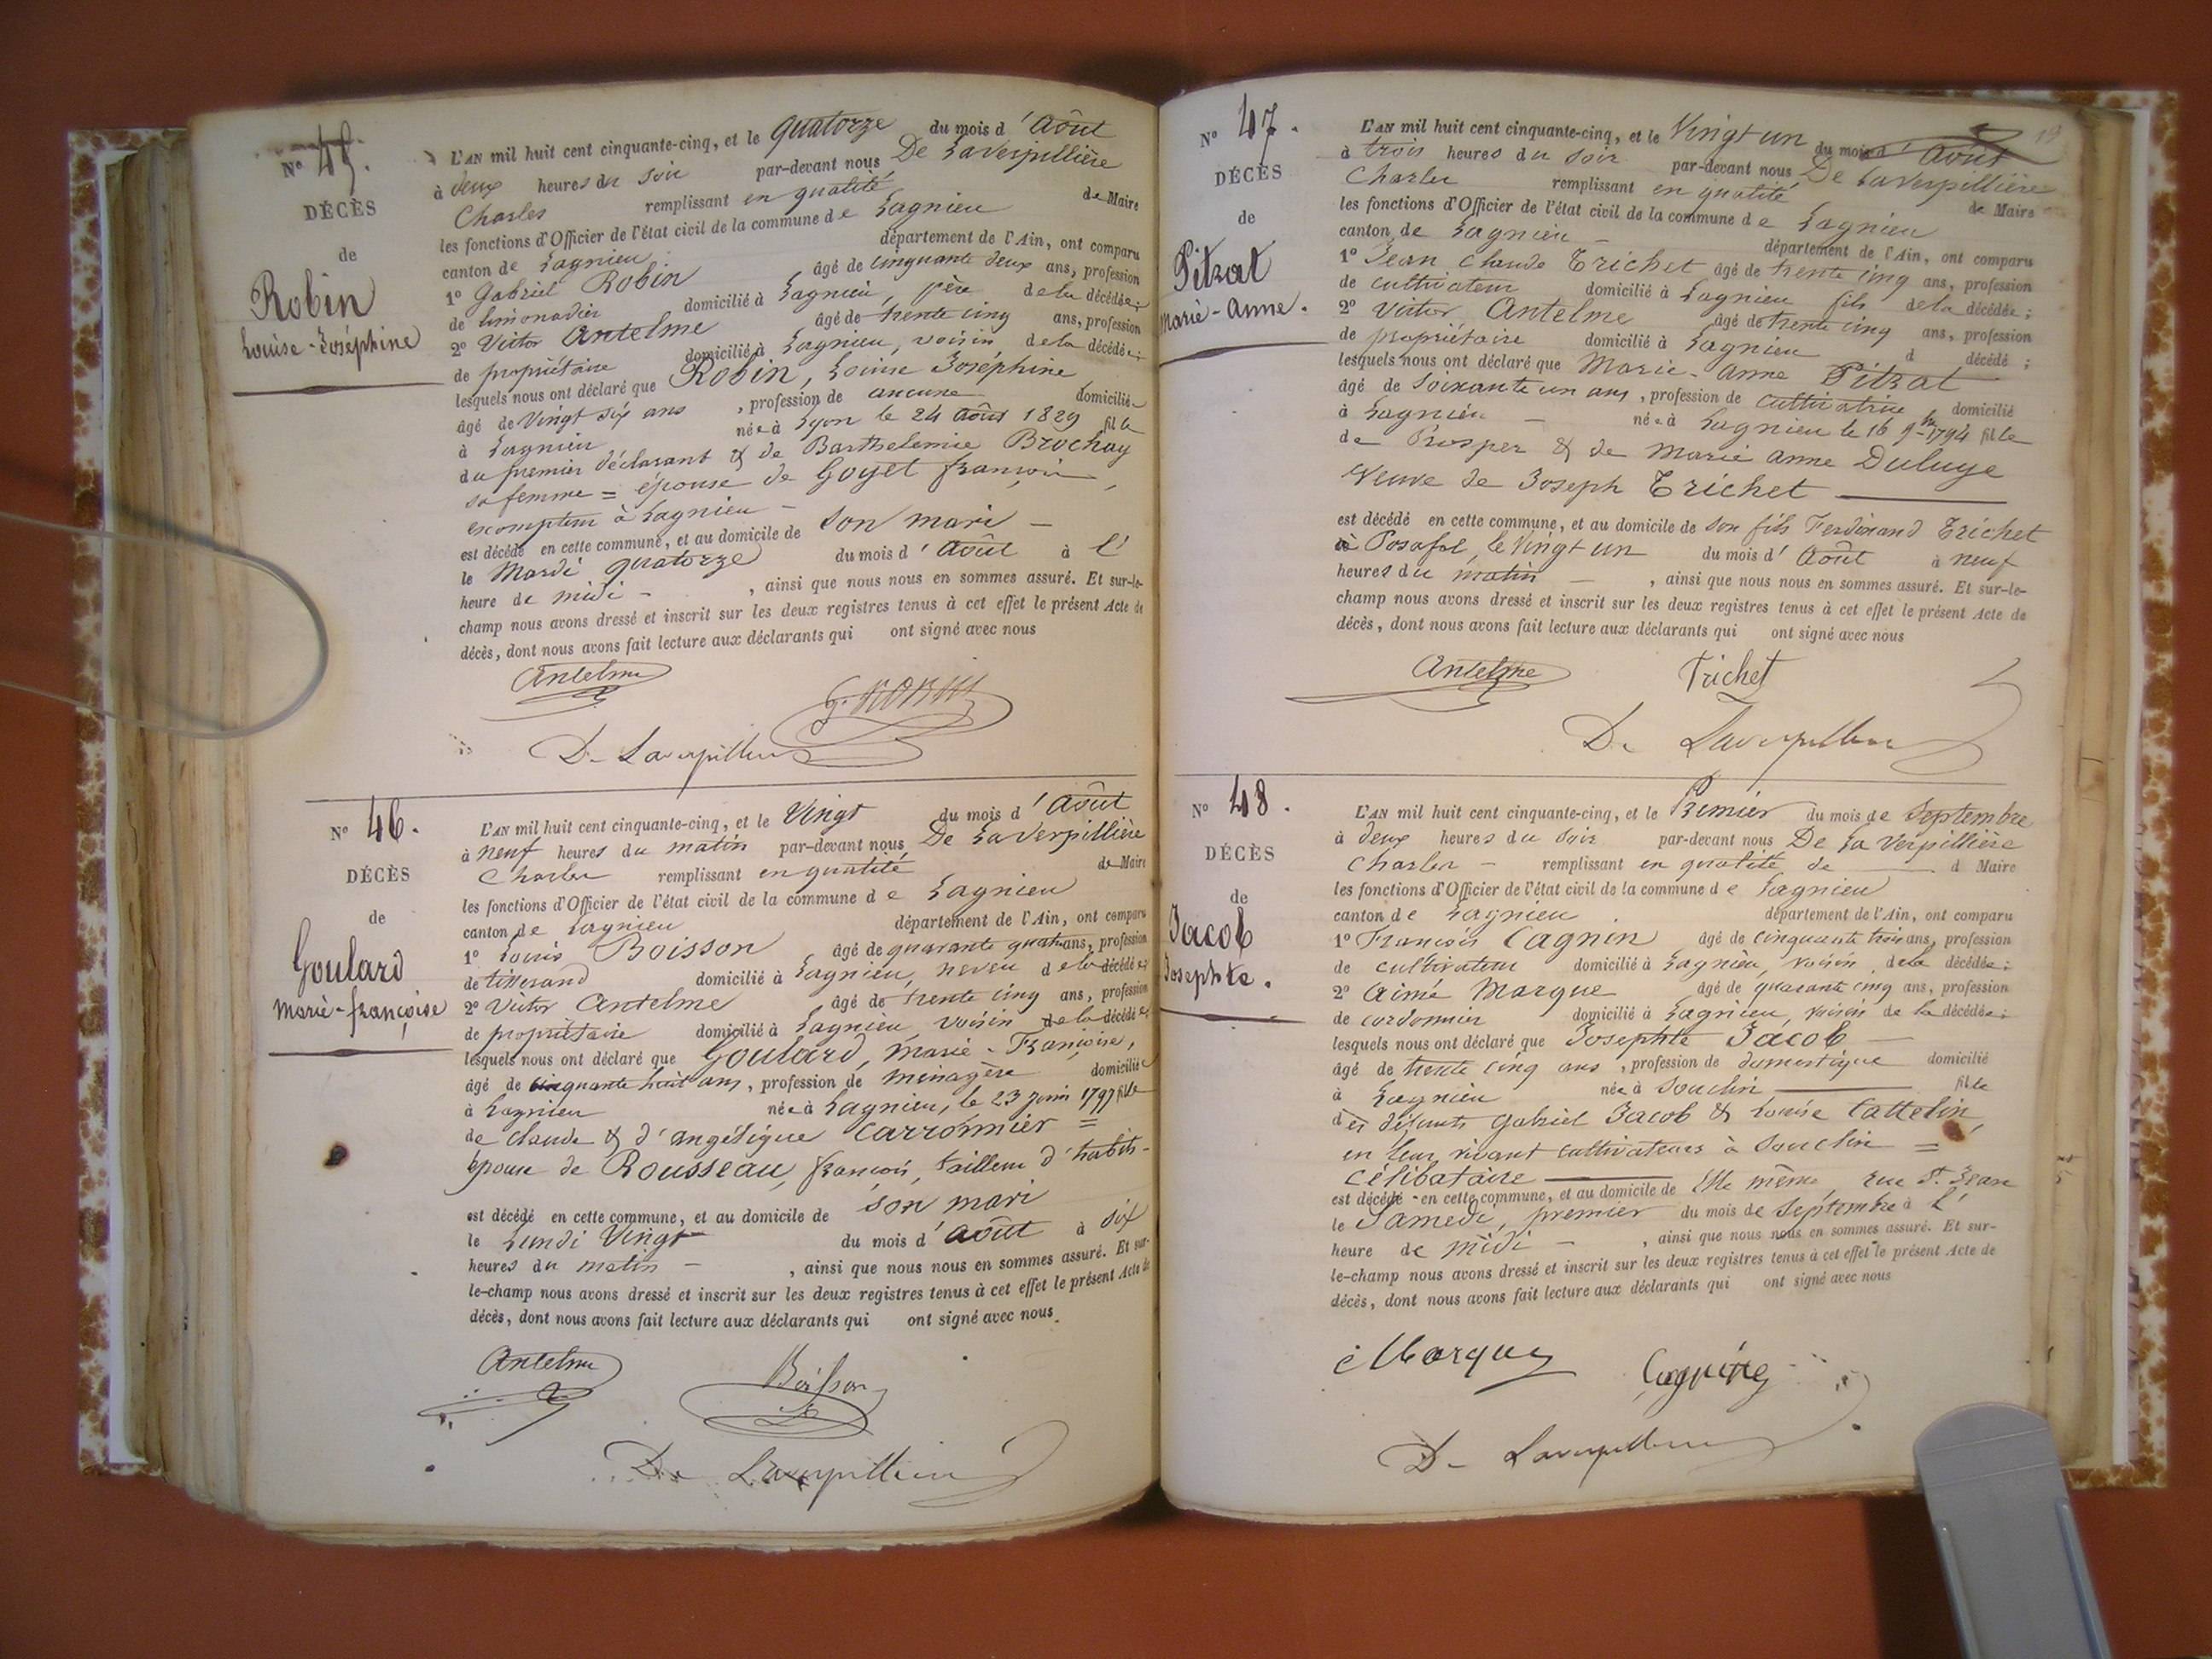 Nº 45.
DÉCÈS
de
Robin
Louise-Joséphine
L'AN mil huit cent cinquante-cinq, et le quatorze du mois d'Août
à deux heures du soir par-devant nous De LaVerpillière
Charles remplissant en qualité de Maire
les fonctions d'Officier de l'état civil de la commune de Lagnieu
canton de Lagnieu département de l'Ain, ont comparu
1º Gabriel Robin âgé de cinquante deux ans, profession
de limonadier domicilié à Lagnieu, père de la décédée;
2º Victor Antelme âgé de trente cinq ans, profession
de propriétaire domicilié à Lagnieu, voisin de la décédée;
lesquels nous ont déclaré que Robin, Louise Joséphine
âgé de Vingt six ans, profession de aucune domiciliée
à Lagnieu née à Lyon le 24 Août 1829 fille
du premier déclarant & de Barthelemie Brochay
sa femme = épouse de Goyet françois,
escompteur à Lagnieu -
est décédé en cette commune, et au domicile de son mari -
le Mardi quatorze du mois d'Août à l'
heure de midi - , ainsi que nous nous en sommes assuré. Et sur-le-
champ nous avons dressé et inscrit sur les deux registres tenus à cet effet le présent Acte de
décès, dont nous avons fait lecture aux déclarants qui ont signé avec nous
Antelme
G. ROBIN
De Laverpilliere
Nº 46.
DÉCÈS
de
Goulard
Marie-françoise
L'AN mil huit cent cinquante-cinq, et le Vingt du mois d'Août
à neuf heures du matin par-devant nous De LaVerpillière
Charles remplissant en qualité de Maire
les fonctions d'Officier de l'état civil de la commune de Lagnieu
canton de Lagnieu département de l'Ain, ont comparu
1º Louis Boisson âgé de quarante quatre ans, profession
de tisserand domicilié à Lagnieu, neveu de la décédée;
2º Victor Antelme âgé de trente cinq ans, profession
de propriétaire domicilié à Lagnieu, voisin de la décédée;
lesquels nous ont déclaré que Goulard, Marie-Françoise,
âgé de cinquante huit ans, profession de ménagère domiciliée
à Lagnieu née à Lagnieu, le 23 juin 1797 fille
de claude & d'angélique Carronnier =
épouse de Rousseau, françois, tailleur d'habits -
est décédé en cette commune, et au domicile de son mari
le Lundi Vingt du mois d'août à six
heures du matin - , ainsi que nous nous en sommes assuré. Et sur-
le-champ nous avons dressé et inscrit sur les deux registres tenus à cet effet le présent Acte de
décès, dont nous avons fait lecture aux déclarants qui ont signé avec nous.
Antelme
Boisson
De Laverpilliere
19
Nº 47.
DÉCÈS
de
Pitrat
Marie-Anne.
L'AN mil huit cent cinquante-cinq, et le Vingt un du mois d'Août
à trois heures du soir par-devant nous De LaVerpillière
Charles remplissant en qualité de Maire
les fonctions d'Officier de l'état civil de la commune de Lagnieu
canton de Lagnieu - département de l'Ain, ont comparu
1º Jean Claude Trichet âgé de trente cinq ans, profession
de cultivateur domicilié à Lagnieu fils de la décédée;
2º Victor Antelme âgé de trente cinq ans, profession
de propriétaire domicilié à Lagnieu d décédé;
lesquels nous ont déclaré que Marie-Anne Pitrat
âgé de soixante un ans, profession de cultivatrice domicilié
à Lagnieu - née à Lagnieu le 16 9bre 1794 fille
de Prosper & de Marie Anne Duluye
Veuve de Joseph Trichet
est décédé en cette commune, et au domicile de son fils Ferdinand Trichet
à Posafol, le Vingt un du mois d'Août à neuf
heures du matin - , ainsi que nous nous en sommes assuré. Et sur-le-
champ nous avons dressé et inscrit sur les deux registres tenus à cet effet le présent Acte de
décès, dont nous avons fait lecture aux déclarants qui ont signé avec nous
Antelme
Trichet
De Laverpilliere
Nº 48.
DÉCÈS
de
Jacob
Josephte.
L'AN mil huit cent cinquante-cinq, et le Premier du mois de Septembre
à deux heures du soir par-devant nous De La Verpillière
Charles - remplissant en qualité de d Maire
les fonctions d'Officier de l'état civil de la commune de Lagnieu
canton de Lagnieu département de l'Ain, ont comparu
1º François Cagnin âgé de cinquante trois ans, profession
de cultivateur domicilié à Lagnieu, voisin de la décédée;
2º Aimé Marque âgé de quarante cinq ans, profession
de cordonnier domicilié à Lagnieu, voisin de la décédée;
lesquels nous ont déclaré que Josephte Jacob -
âgé de trente cinq ans, profession de domestique domicilié
à Lagnieu née à Souclin fille
des défunts Gabriel Jacob & Louise Cattelin,
en leur vivant cultivateurs à Souclin =
célibataire
est décédé en cette commune, et au domicile de Elle même, rue St. Jean
le Samedi, premier du mois de Septembre à l'
heure de midi - , ainsi que nous nous en sommes assuré. Et sur-
le-champ nous avons dressé et inscrit sur les deux registres tenus à cet effet le présent Acte de
décès, dont nous avons fait lecture aux déclarants qui ont signé avec nous
Marque
Cagnin
De Laverpilliere